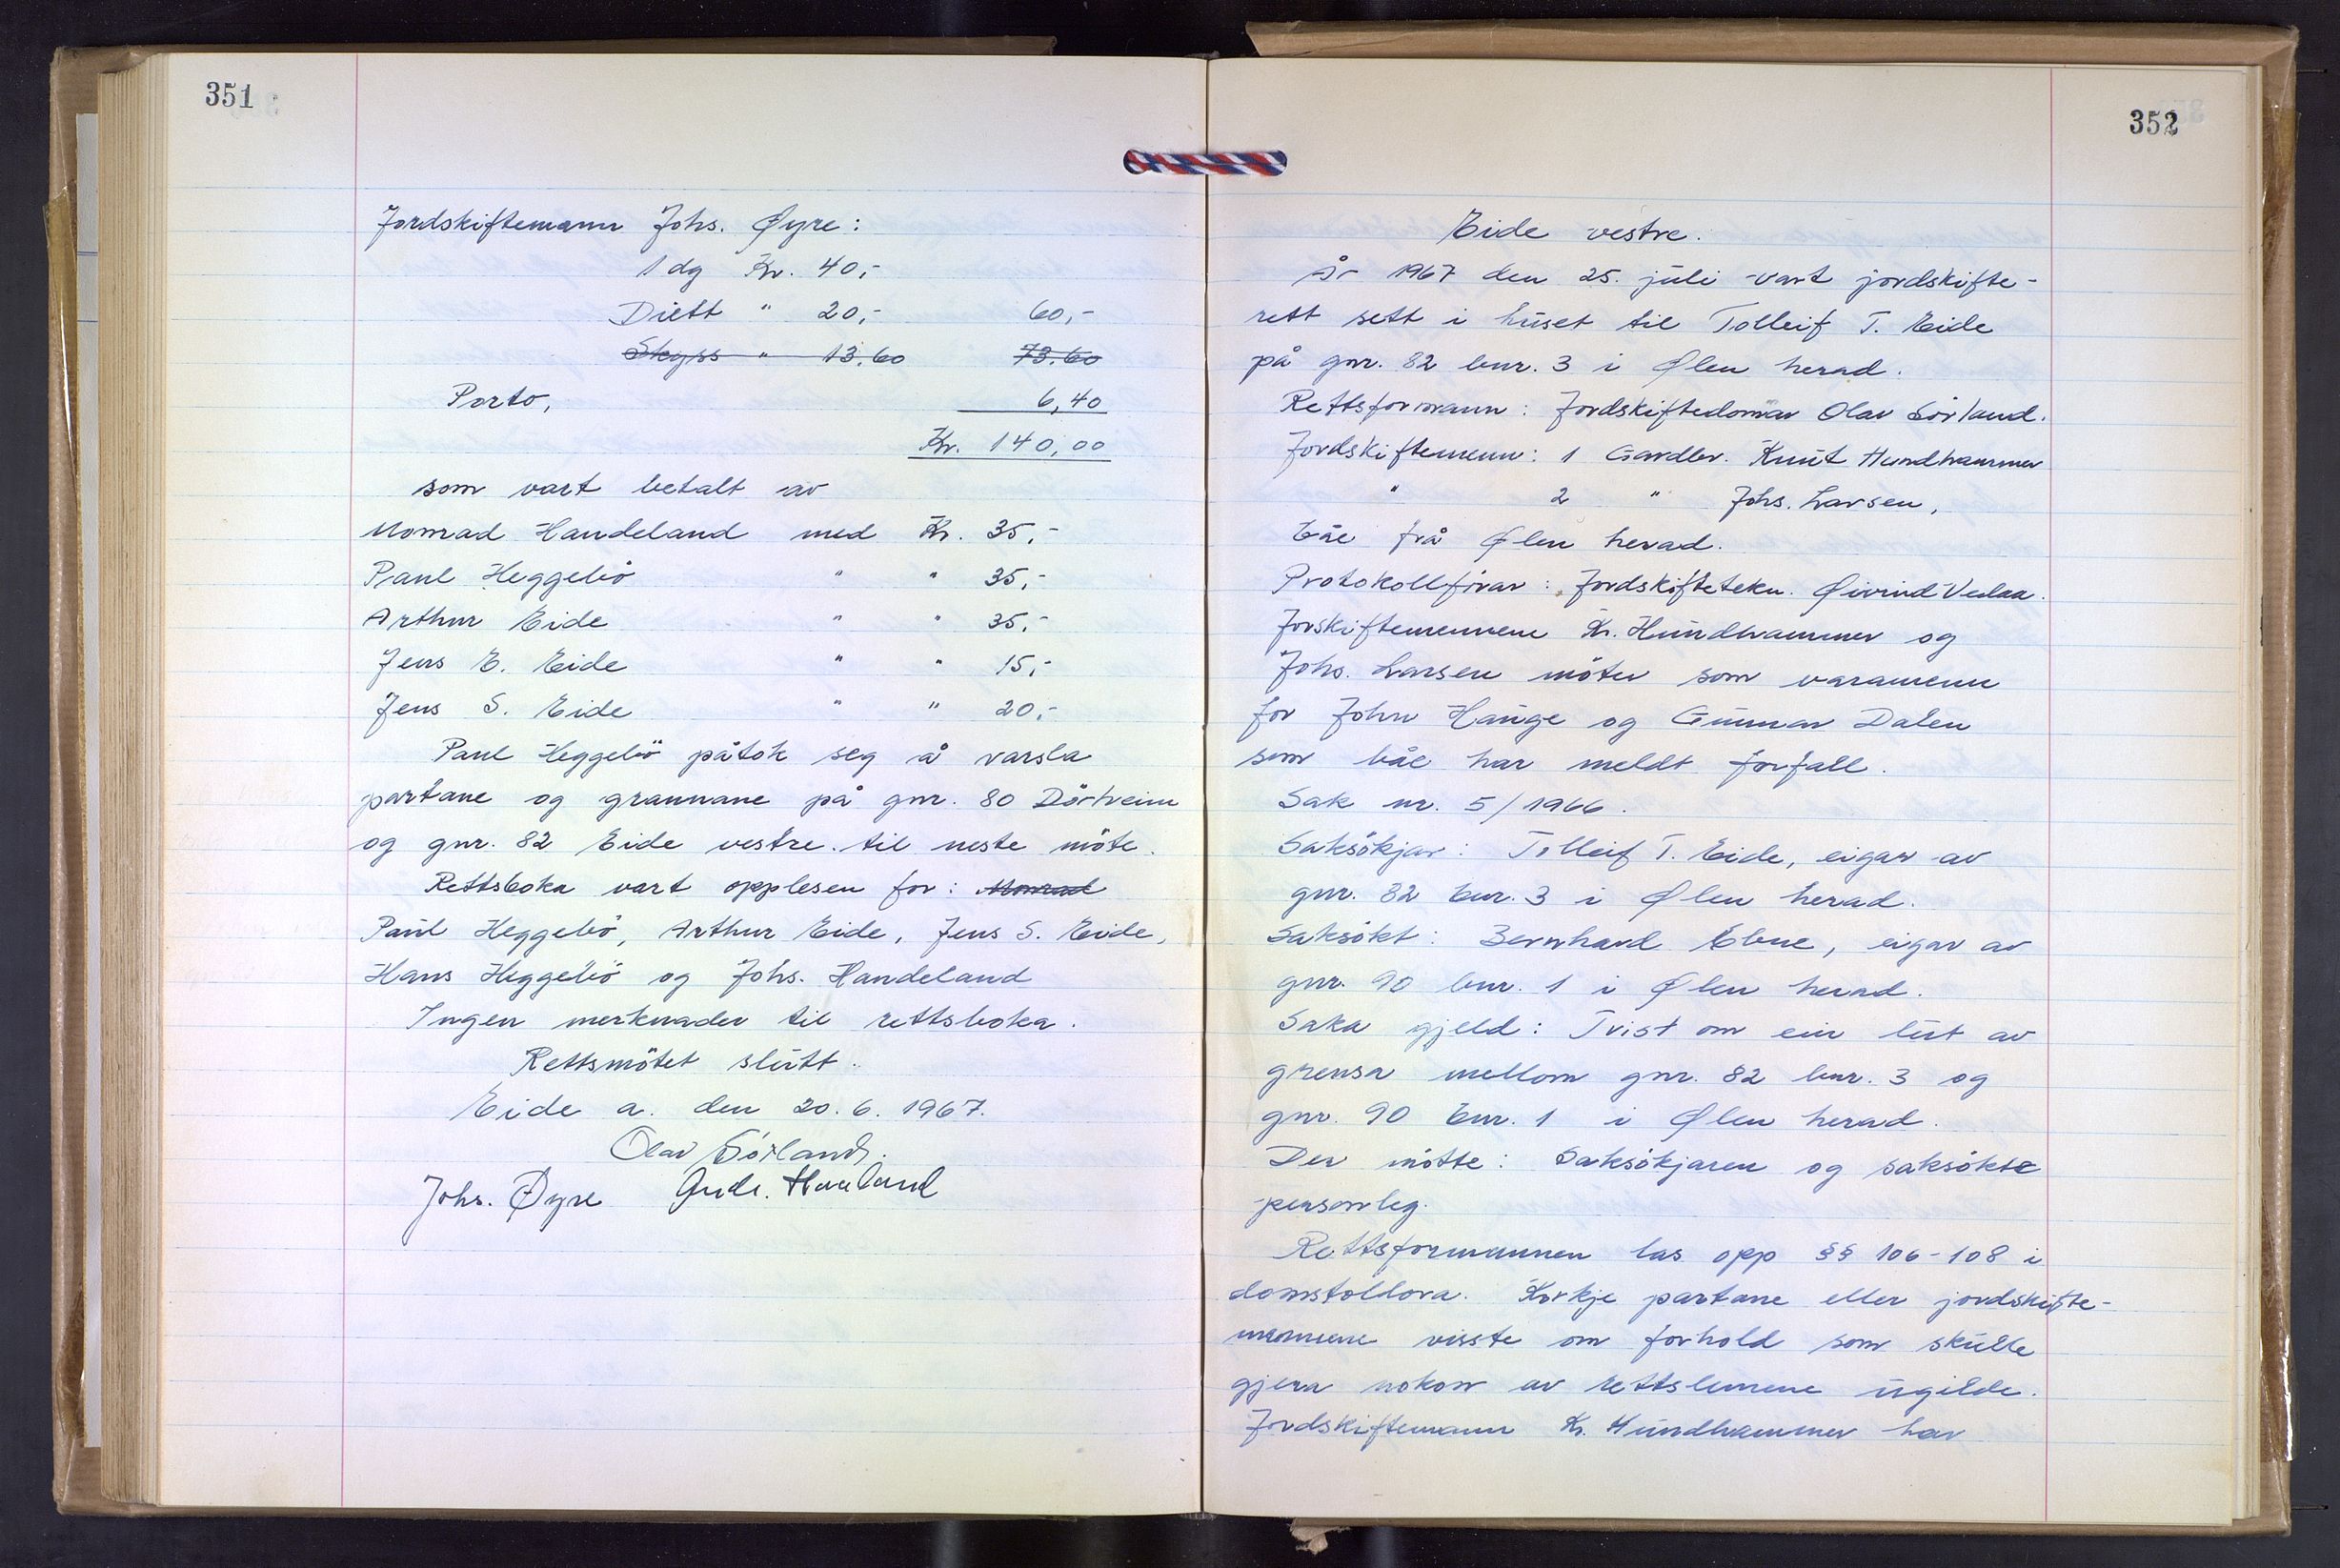 351
Jordskiftemann Johs. Øyre:
1 dg Kr. 40,-
Diett " 20,- 60,-
Skyss " 13.60 73.60
Porto, 6,40
Kr. 140,00
som vart betalt av
Monrad Handeland med Kr. 35,-
Paul Heggebö " " 35,-
Arthur Eide " " 35,-
Jens E. Eide " " 15,-
Jens S. Eide " " 20,-
Paul Heggebö påtok seg å varsla
partane og grannane på gnr. 80 Dörheim
og gnr. 82 Eide vestre til neste möte.
Rettsboka vart opplesen for: Monrad
Paul Heggebö, Arthur Eide, Jens S. Eide,
Hans Heggebö og Johs. Handeland
Ingen merknader til rettsboka.
Rettsmötet slutt.
Eide a. den 20.6.1967.
Olav Sörland.
Johs. Øyre
352
Eide vestre.
År 1967 den 25. juli vart jordskifte-
rett sett i huset til Tolleif T. Eide
på gnr. 82 bnr. 3 i Ølen herad.
Rettsformann: Jordskiftedomar Olav Sörland.
Jordskiftemenn: 1 Gardbr. Knut Hundhammer
" 2 " Johs. Larsen,
båe frå Ølen herad.
Protokollförar: Jordskiftetekn. Øivind
Jorskiftemennene Kn. Hundhammer og
Johs. Larsen möter som varamenn
for John Hauge og Gunnar Dalen
som båe har meldt forfall.
Sak nr. 5/1966.
Saksökjar: Tolleif T. Eide, eigar av
gnr. 82 bnr. 3 i Ølen herad.
Saksökt: Bernhard Ebne, eigar av
gnr. 90 bnr. 1 i Ølen herad.
Saka gjeld: Tvist om ein lut av
grensa mellom gnr. 82 bnr. 3 og
gnr. 90 bnr. 1 i Ølen herad.
Der mötte: Saksökjaren og saksökte
personleg.
Rettsformannen las opp §§ 106-108 i
domstollova. Korkje partane eller jordskifte-
mennene visste om forhold som skulle
gjera nokon av rettslemene ugilde.
Jordskiftemann Kn. Hundhammer har